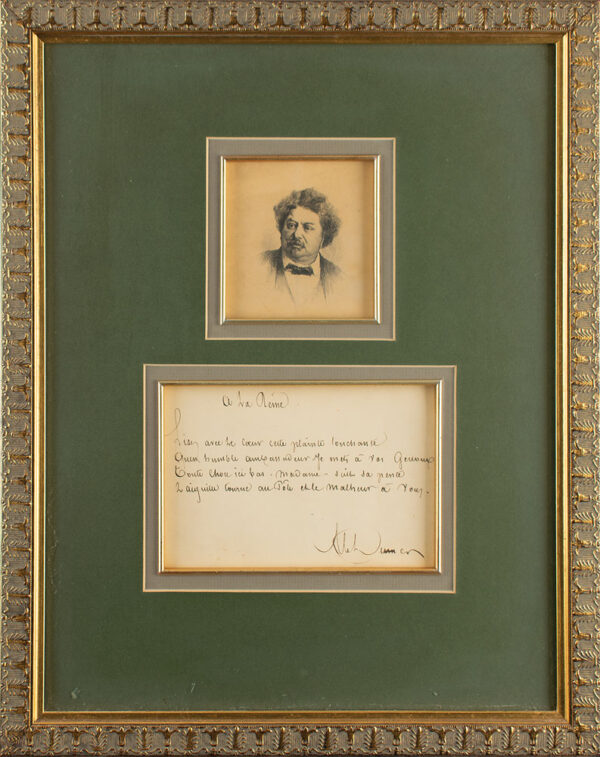 A La Reine.
Lisez avec le cœur cette plainte touchante
Qu'en humble ambassadeur je mets à vos Genoux
Toute chose ici bas - Madame - suit sa pente
L'aiguille tourne au Pôle et le Malheur à Vous.
Alex Dumas